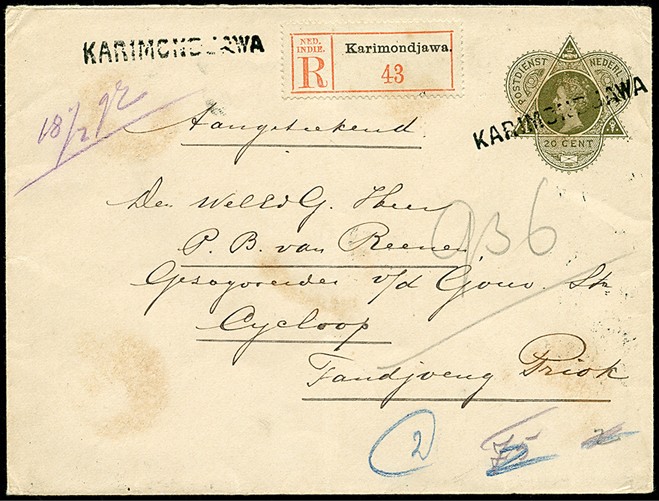 KARIMONDJAWA
NED. INDIE.
R
Karimondjawa.
43
POSTDIENST NEDERL
20 CENT
KARIMONDJAWA
18/2 92
Aangeteekend
Den WelEd. G. Heer
P. B. van Reenen
Gezagvoerder v/d Gouv. St.
Cycloop
Tandjoeng Priok
936
2